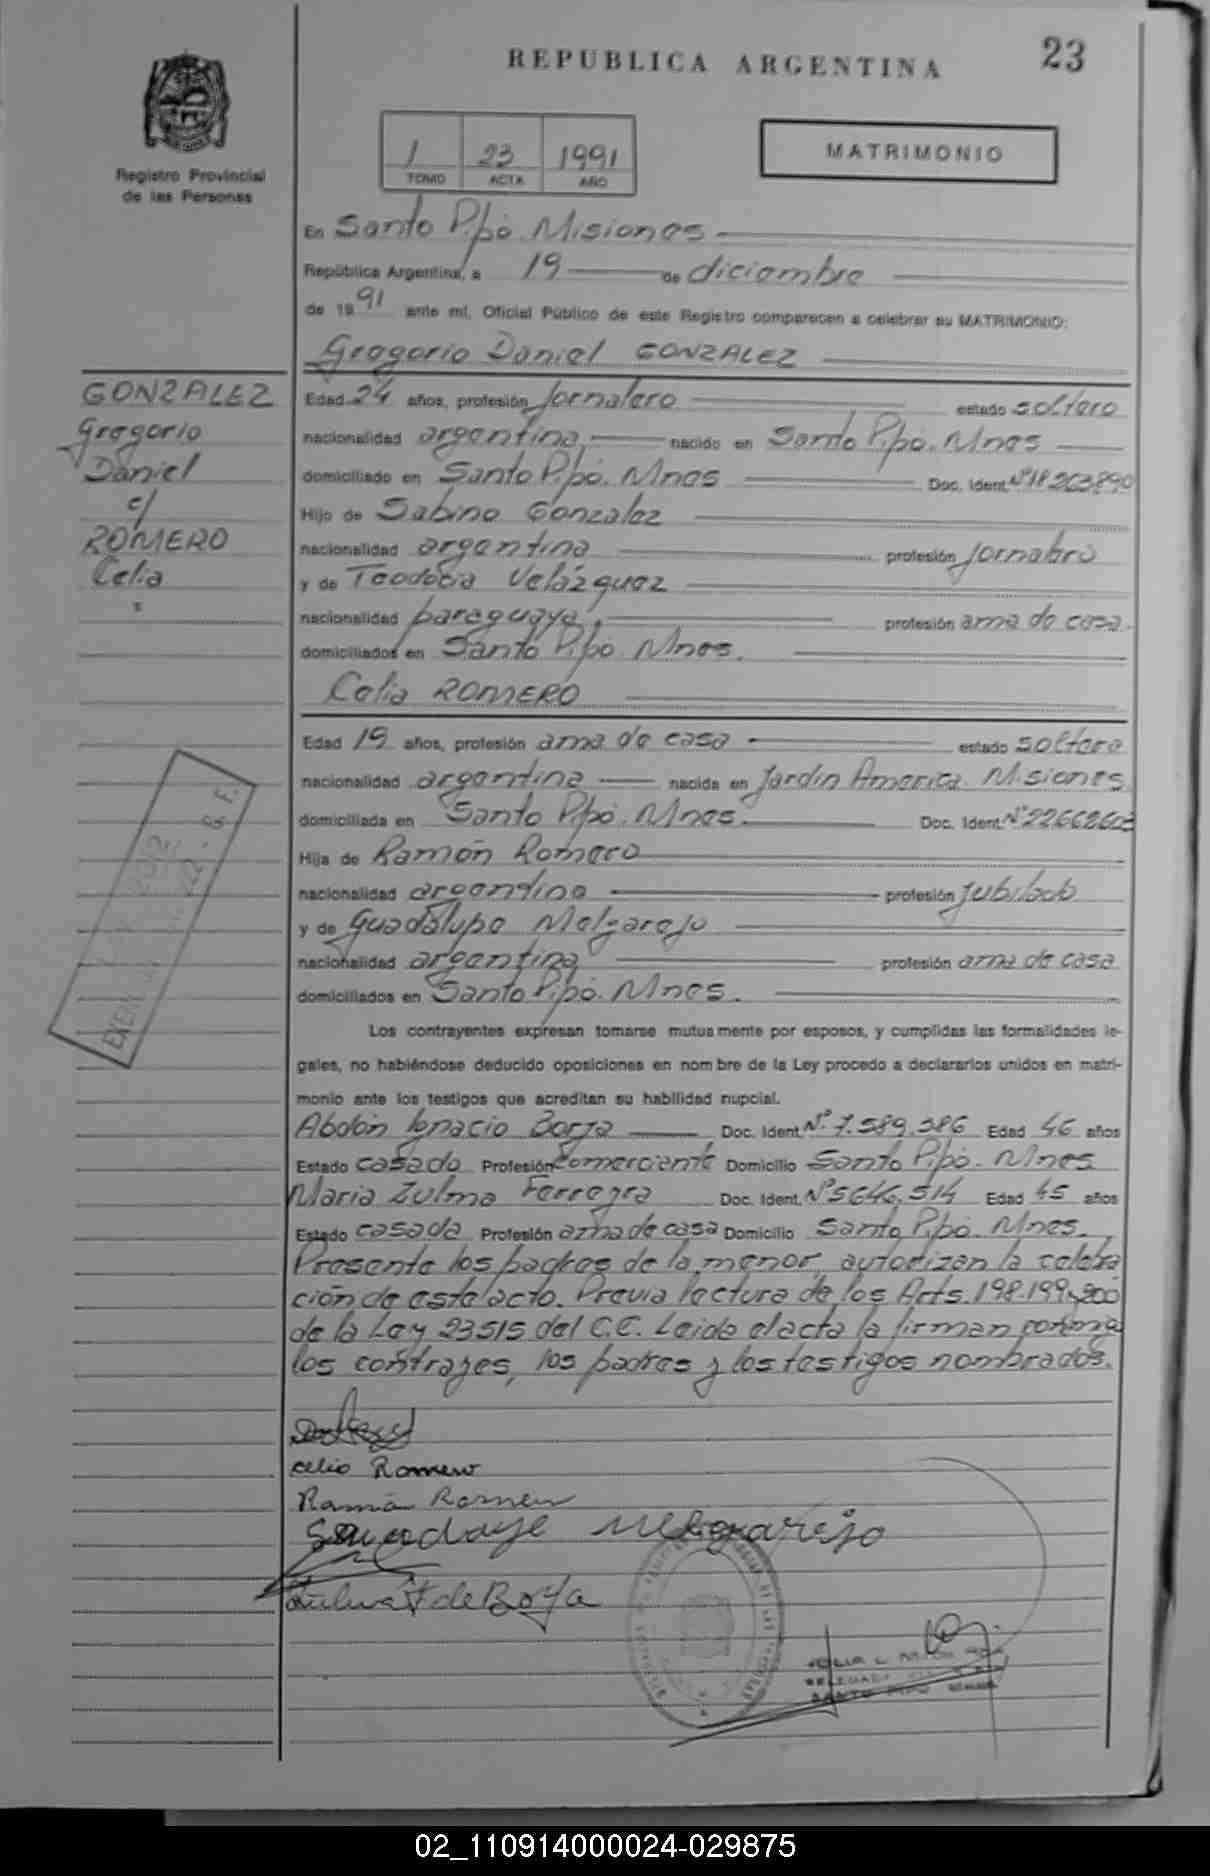 REPUBLICA ARGENTINA
23
Registro Provincial
de las Personas
1 23 1991
TOMO ACTA AÑO
MATRIMONIO
En Santo Pipó. Misiones
República Argentina, a 19 de diciembre
de 1991 ante mí, Oficial Público de este Registro comparecen a celebrar su MATRIMONIO:
Gregorio Daniel GONZALEZ
GONZALEZ
Gregorio
Daniel
c/
ROMERO
Celia
Edad 24 años, profesión Jornalero estado soltero
nacionalidad argentina nacido en Santo Pipó. Mnes
domiciliado en Santo Pipó. Mnes Doc. Ident. Nº 18203890
Hijo de Sabino Gonzalez
nacionalidad argentina profesión Jornalero
y de Teodocia Velázquez
nacionalidad paraguaya. profesión ama de casa.
domiciliados en Santo Pipó. Mnes.
Celia ROMERO
Edad 19 años, profesión ama de casa estado soltera
nacionalidad argentina nacida en Jardín America. Misiones
domiciliada en Santo Pipó. Mnes. Doc. Ident. Nº
Hija de Ramón Romero
nacionalidad argentina profesión Jubilado
y de Guadalupe Melgarejo
nacionalidad argentina profesión ama de casa
domiciliados en Santo Pipó. Mnes.
Los contrayentes expresan tomarse mutuamente por esposos, y cumplidas las formalidades le-
gales, no habiéndose deducido oposiciones en nombre de la Ley procedo a declararlos unidos en matri-
monio ante los testigos que acreditan su habilidad nupcial.
Abdón Ignacio Borja Doc. Ident. Nº 7.589.386 Edad 46 años
Estado casado Profesión comerciante Domicilio Santo Pipó. Mnes
Maria Zulma Ferreyra Doc. Ident. Nº 5646.514 Edad 45 años
Estado casada Profesión ama de casa Domicilio Santo Pipó. Mnes.
Presente los padres de la menor, autorizan la celebra
ción de este acto. Previa lectura de los Arts. 198.199 y 200
de la Ley 23515 del C.C. Leida el acta la firman conmigo
los contrayes, los padres y los testigos nombrados.
celia Romero
Ramón Romero
Melgarejo
Zulma F de Borja
SANTO PIPO
02_110914000024-029875